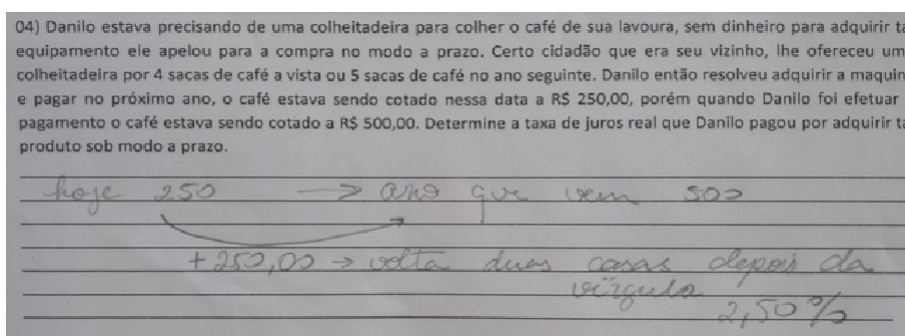 04) Danilo estava precisando de uma colheitadeira para colher o café de sua lavoura, sem dinheiro para adquirir ta
equipamento ele apelou para a compra no modo a prazo. Certo cidadão que era seu vizinho, lhe ofereceu um
colheitadeira por 4 sacas de café a vista ou 5 sacas de café no ano seguinte. Danilo então resolveu adquirir a maquin
e pagar no próximo ano, o café estava sendo cotado nessa data a R$ 250,00, porém quando Danilo foi efetuar
pagamento o café estava sendo cotado a R$ 500,00. Determine a taxa de juros real que Danilo pagou por adquirir ta
produto sob modo a prazo.
hoje 250 → ano que vem 500
+250,00 → volta duas casas depois da
vírgula
2,50%